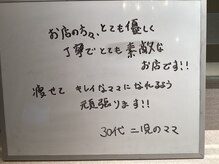 お店の方々、とても優しく
丁寧でとても素敵な
お店です!!
痩せて キレイなママになれるよう
頑張ります!!
30代 二児のママ